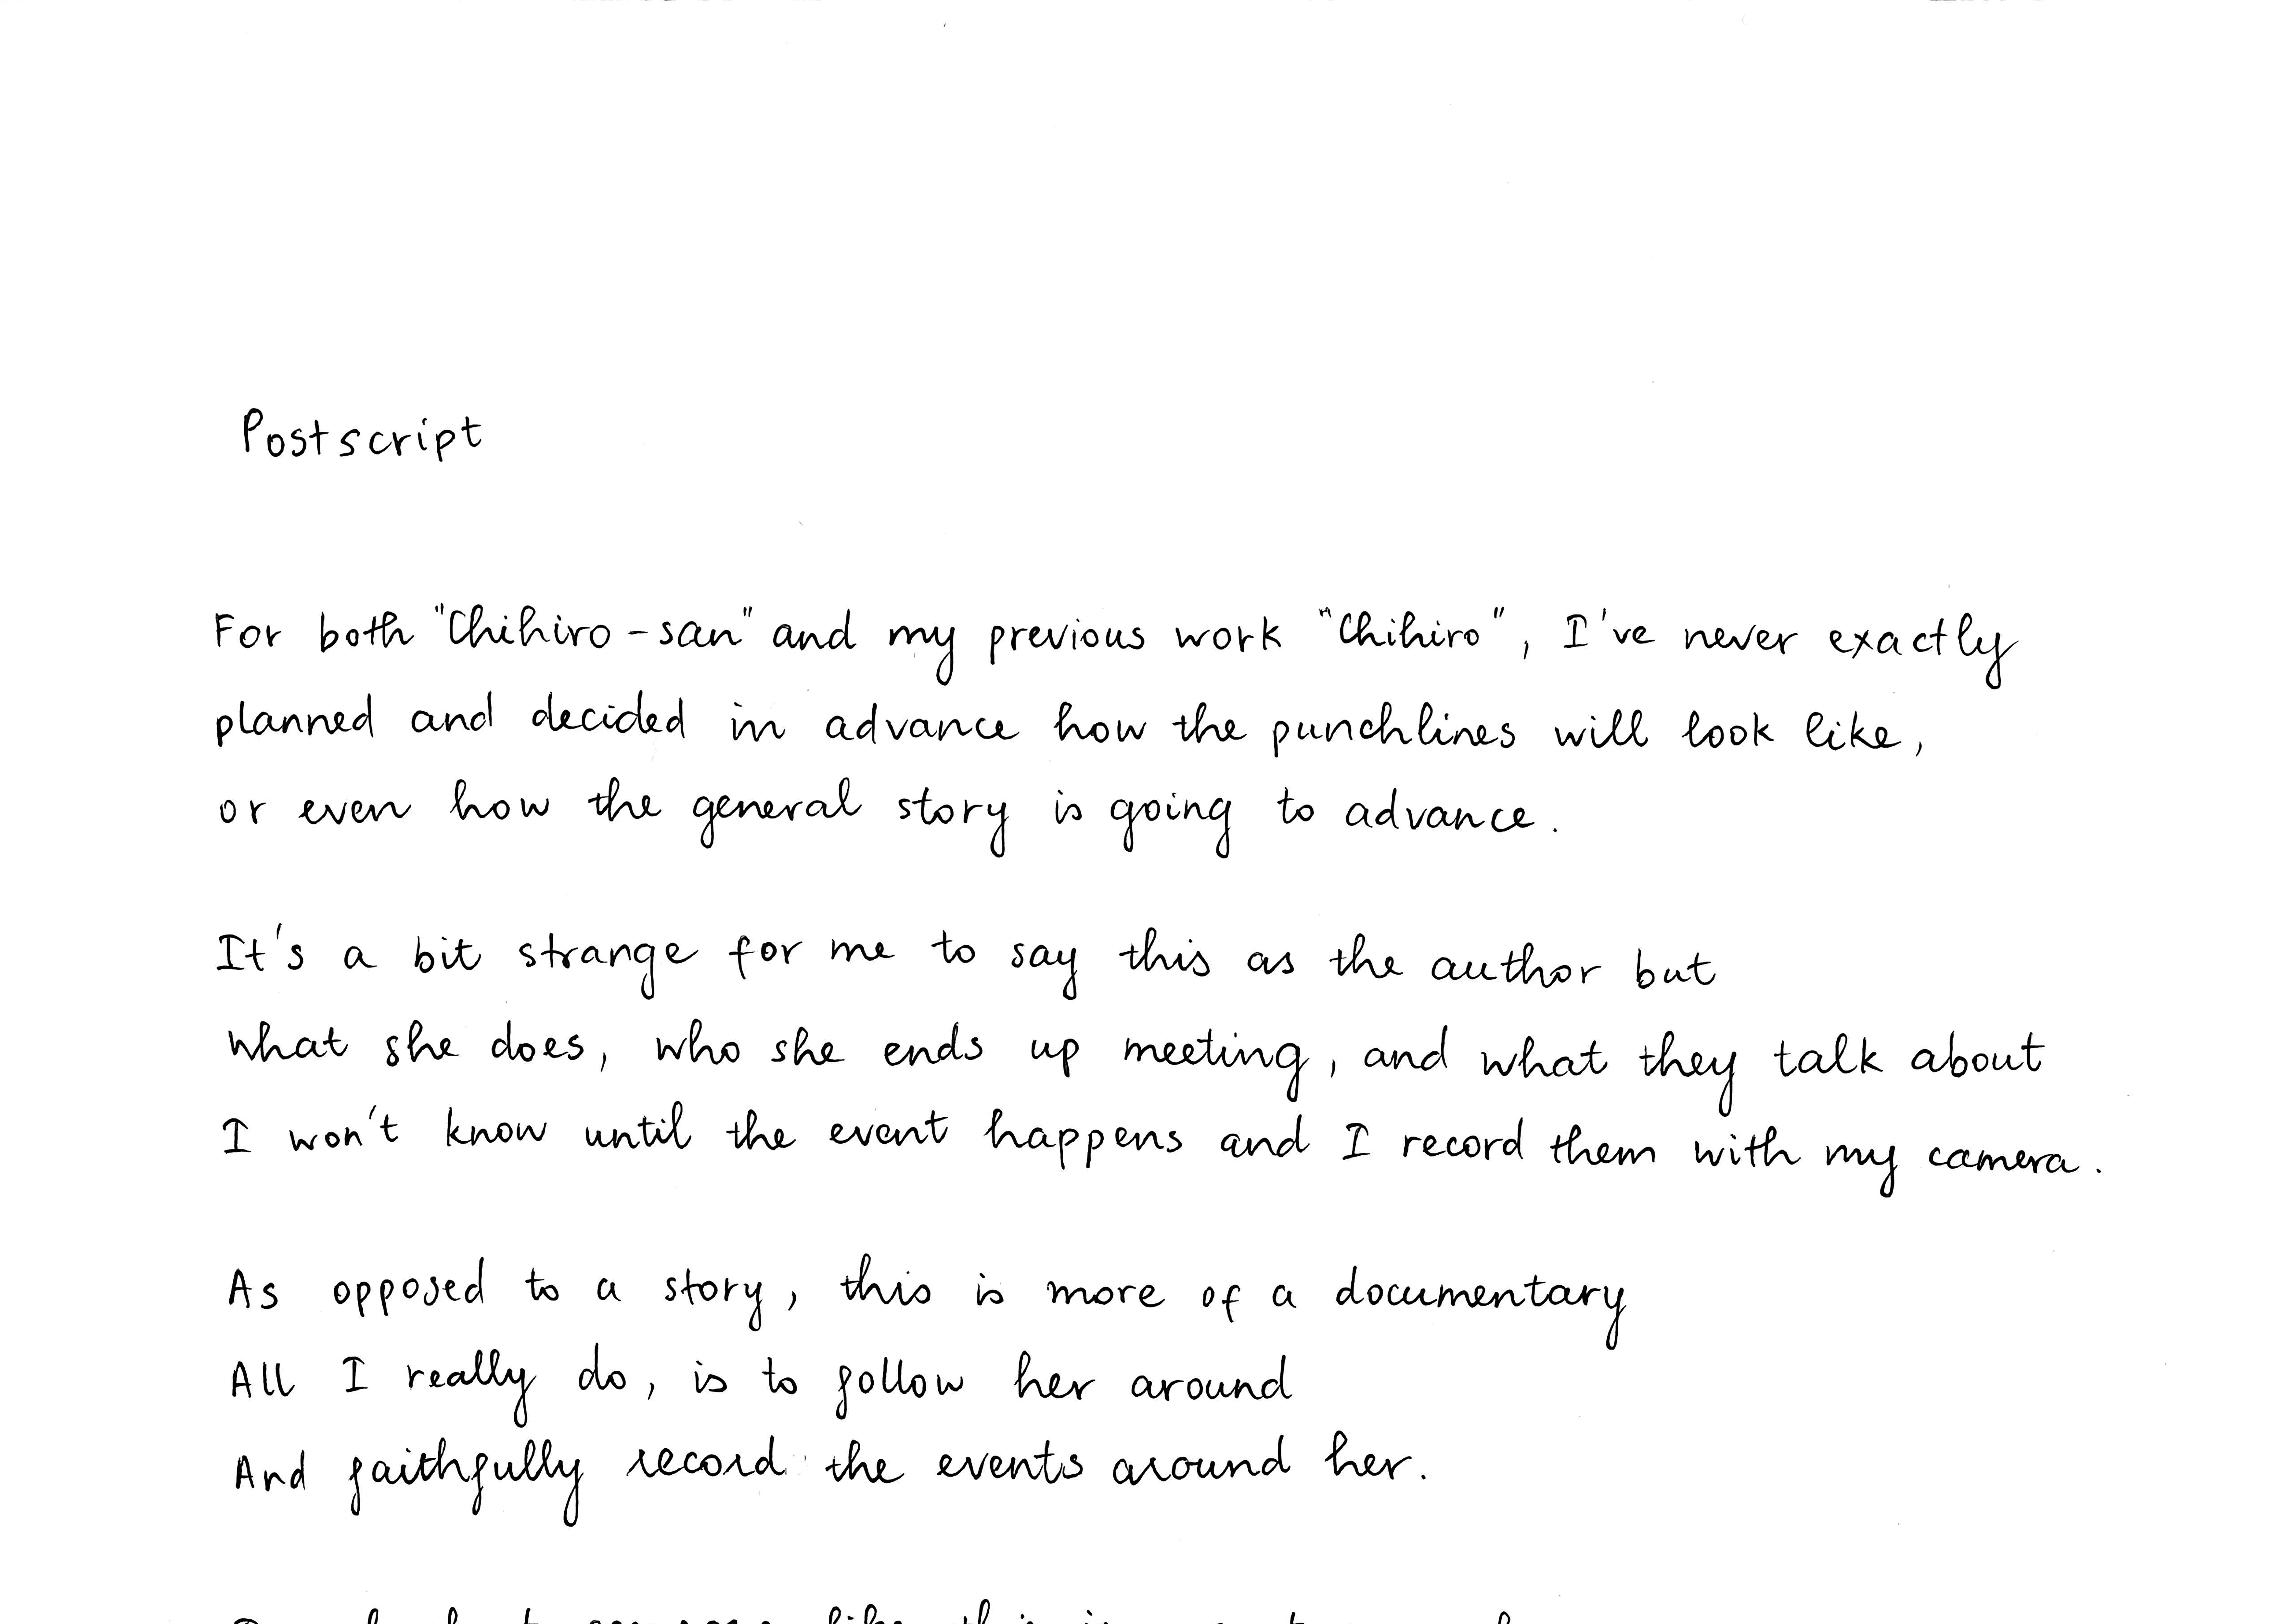 Postscript
For both "Chihiro-san" and my previous work "Chihiro", I've never exactly
planned and decided in advance how the punchlines will look like,
or even how the general story is going to advance.
It's a bit strange for me to say this as the author but
what she does, who she ends up meeting, and what they talk about
I won't know until the event happens and I record them with my camera.
As opposed to a story, this is more of a documentary
All I really do, is to follow her around
And faithfully record the events around her.